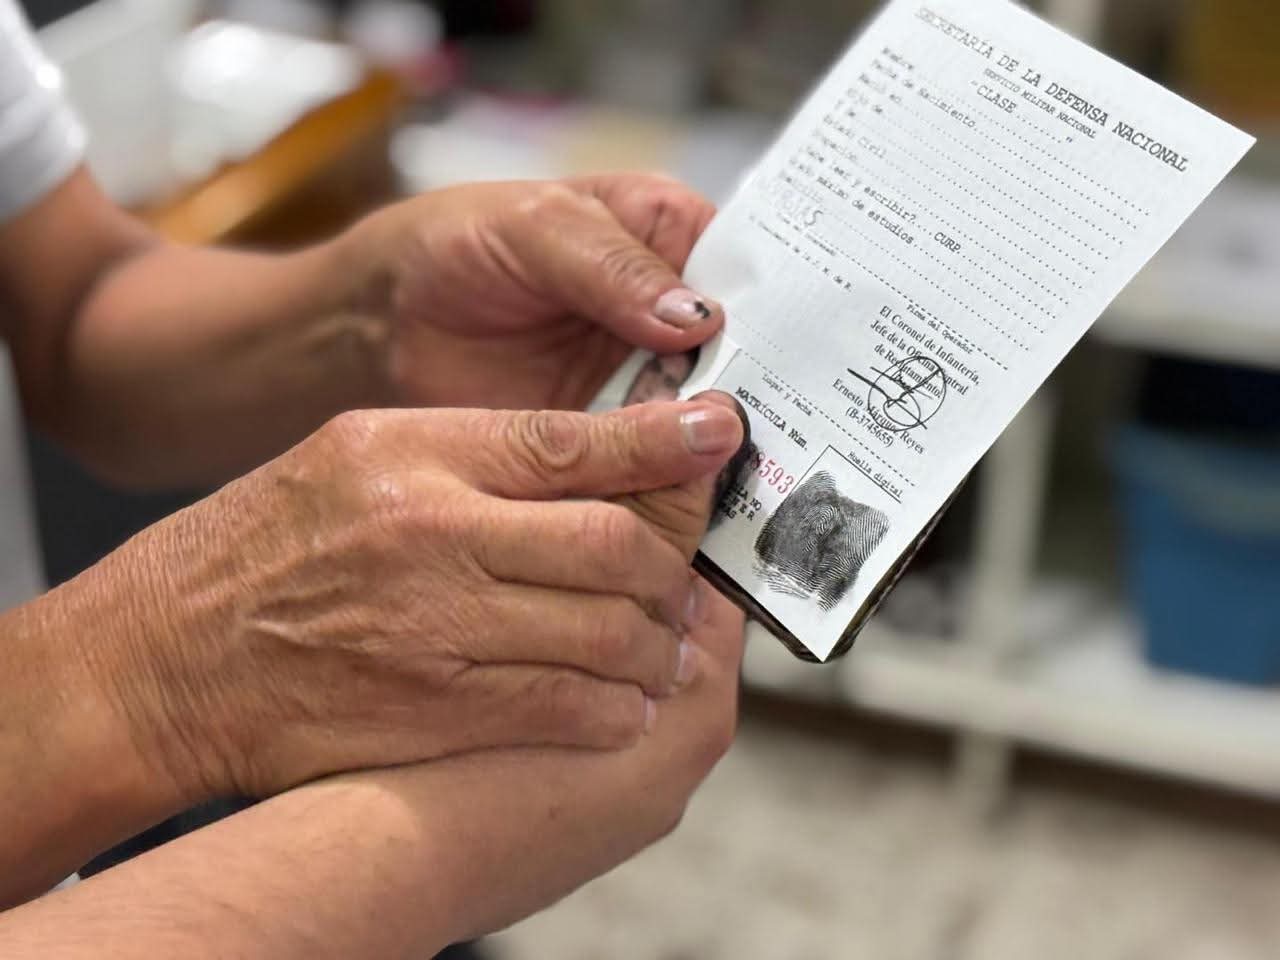 SECRETARÍA DE LA DEFENSA NACIONAL
SERVICIO MILITAR NACIONAL
"CLASE ........"
Nombre
Fecha de Nacimiento
Nació en
Hijo de
Y de
Estado Civil
Ocupación
Sabe leer y escribir? CURP
Grado máximo de estudios
Domicilio
Firma del Operador
El Coronel de Infantería,
Jefe de la Oficina Central
de Reclutamiento
Ernesto Márquez Reyes
(B-3745655)
Lugar y Fecha
MATRÍCULA Núm.
8593
Huella digital